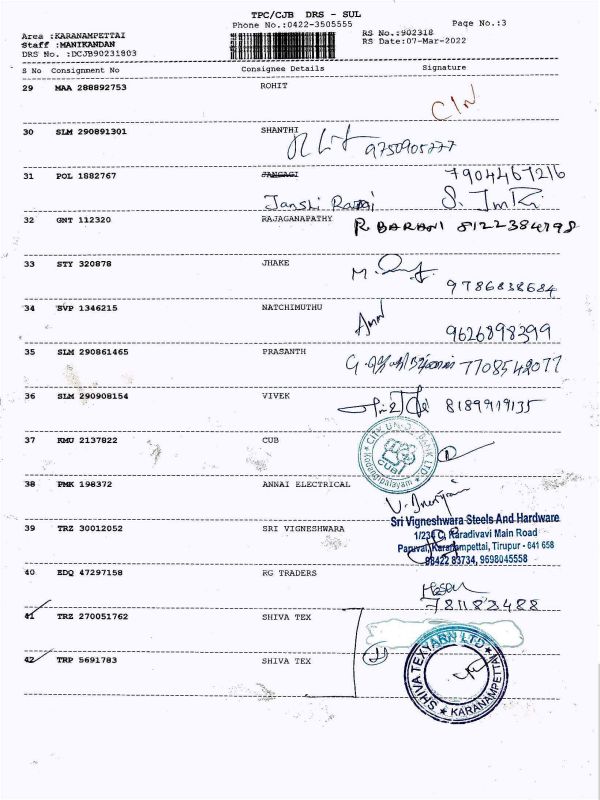 TPC/CJB DRS - SUL
Phone No.:0422-3505555 Page No.:3
Area :KARANAMPETTAI RS No.:902318
Staff :MANIKANDAN RS Date:07-Mar-2022
DRS No. :DCJB90231803
S No Consignment No Consignee Details Signature
29 MAA 288892753 ROHIT
30 SLM 290891301 SHANTHI
9750905777
31 POL 1882767 JANGAGI 7904467216
Janshi Rani
32 GNT 112320 RAJAGANAPATHY R. BARANI 8122384798
33 STY 320878 JHAKE
9786838684
34 SVP 1346215 NATCHIMUTHU
9626898399
35 SLM 290861465 PRASANTH 7708542077
36 SLM 290908154 VIVEK 8189919135
37 KMU 2137822 CUB
CITY UNION BANK LTD
CUB
38 PMK 198372 ANNAI ELECTRICAL
39 TRZ 30012052 SRI VIGNESHWARA
Sri Vigneshwara Steels And Hardware
Karadivavi Main Road
Karanampettai, Tirupur - 641 658
98422 83734, 9698045558
40 EDQ 47297158 RG TRADERS
41 TRZ 270051762 SHIVA TEX
42 TRP 5691783 SHIVA TEX
SHIVA TEXYARN LTD
KARANAMPETTAI